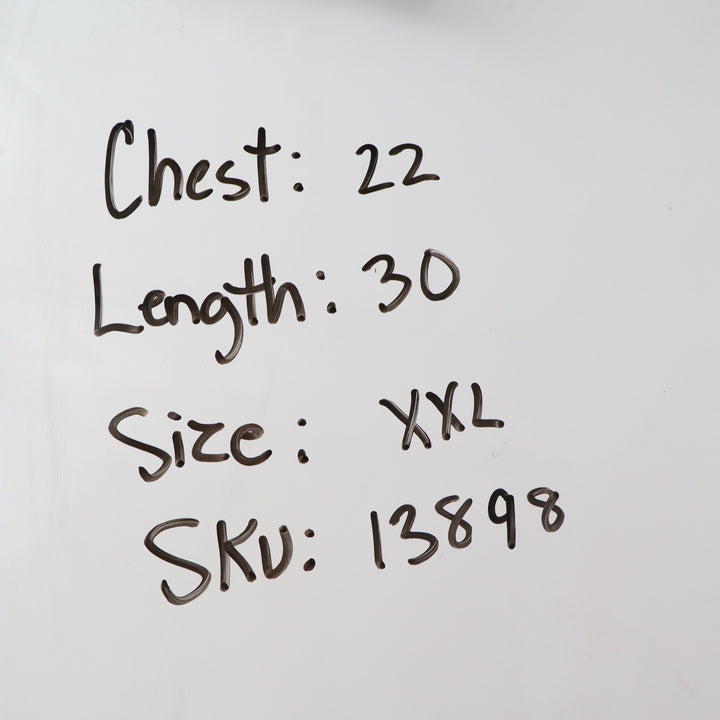 Chest: 22
Length: 30
Size: XXL
SKU: 13898